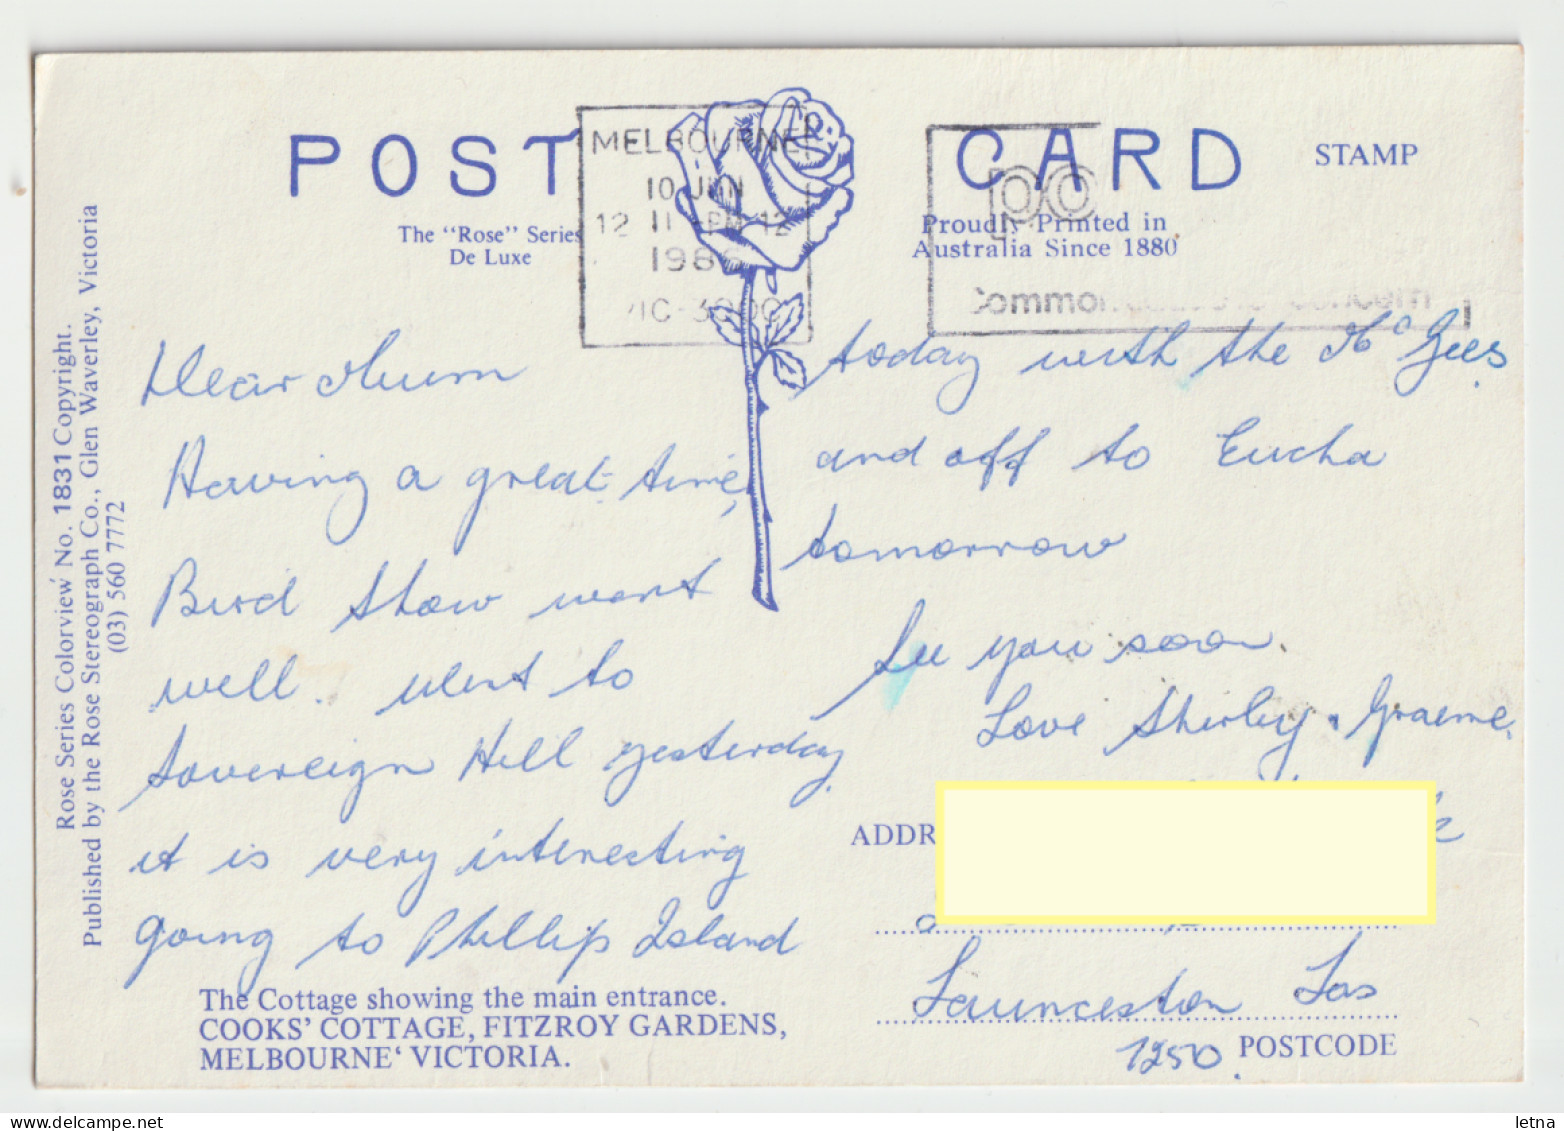 POST CARD
STAMP
The "Rose" Series
De Luxe
Proudly Printed in
Australia Since 1880
MELBOURNE
10 JUN
12 11 -PM 12
1986
VIC-3000
po
Rose Series Colorview No. 1831 Copyright.
Published by the Rose Stereograph Co., Glen Waverley, Victoria
(03) 560 7772
Dear Mum
Having a great time,
Bird Show went
well. Went to
Sovereign Hill yesterday.
it is very interesting
going to Phillip Island
today with the McGees
and off to Eucha
tomorrow
See you soon.
Love Shirley & Graeme.
ADDR
Launceston Tas
7250. POSTCODE
The Cottage showing the main entrance.
COOKS' COTTAGE, FITZROY GARDENS,
MELBOURNE' VICTORIA.
letna